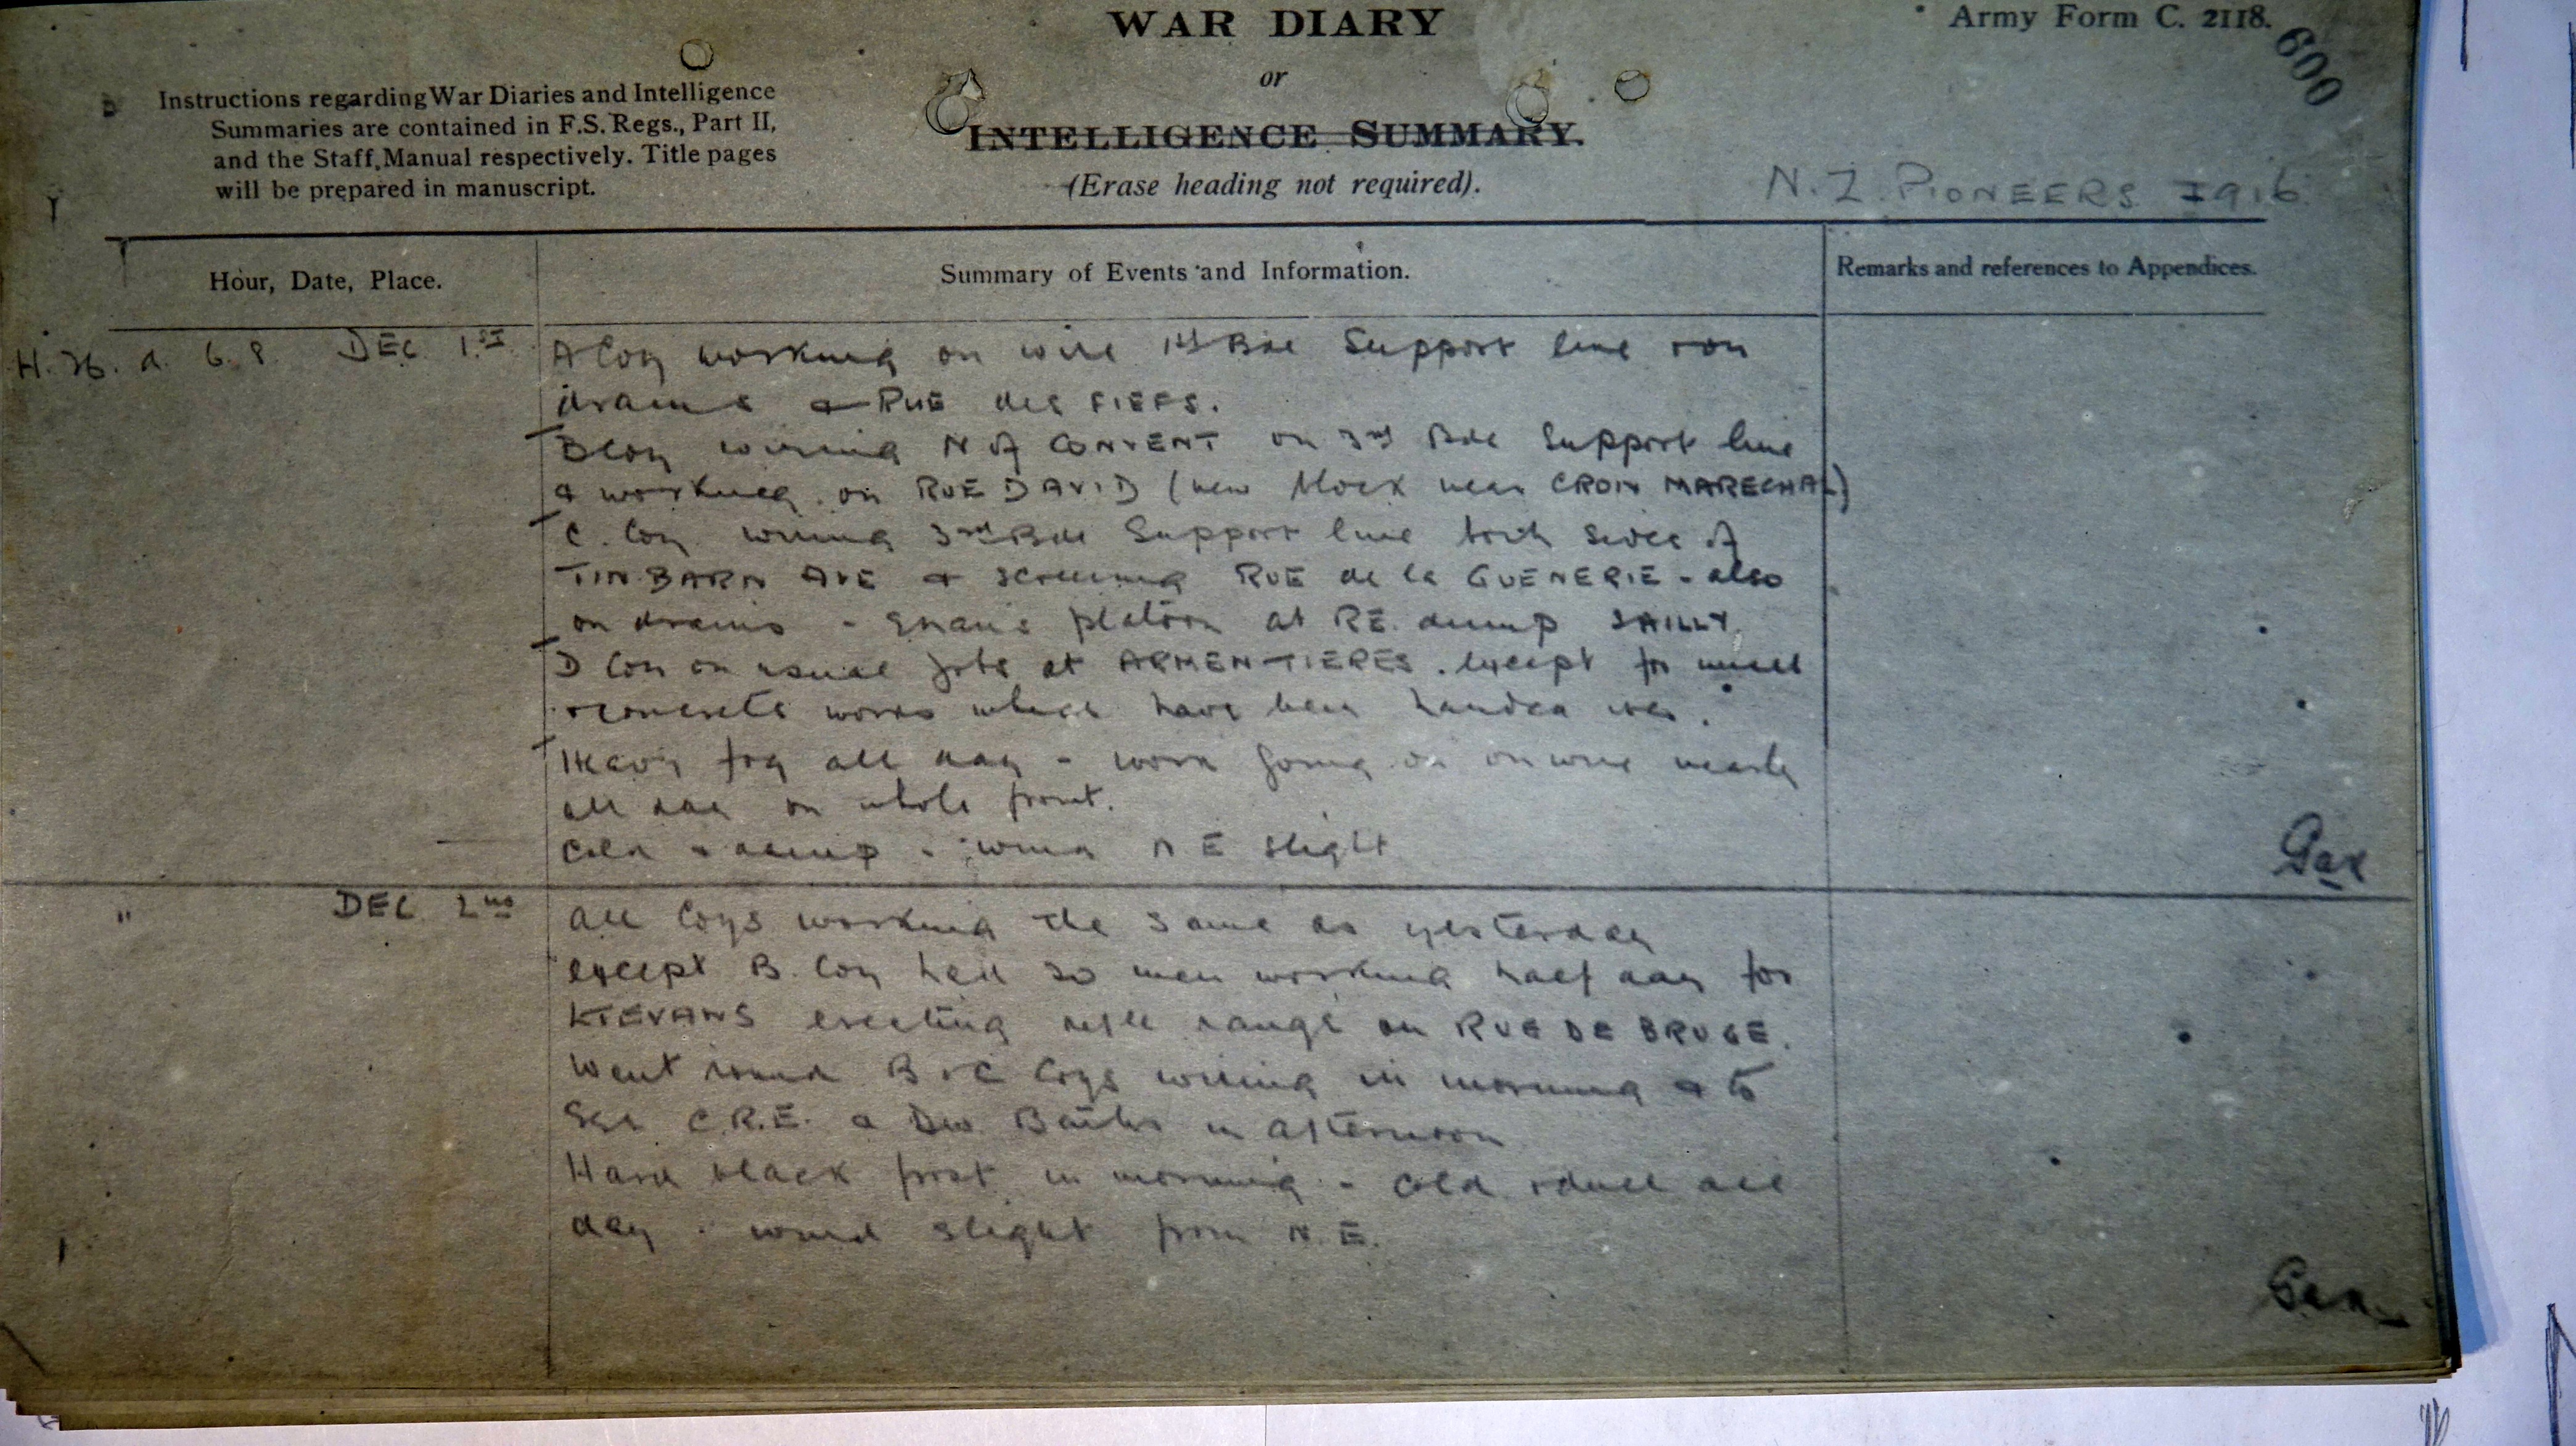 WAR DIARY
or
INTELLIGENCE SUMMARY.
(Erase heading not required).
Army Form C. 2118.
600
Instructions regarding War Diaries and Intelligence
Summaries are contained in F.S. Regs., Part II,
and the Staff Manual respectively. Title pages
will be prepared in manuscript.
N.Z. PIONEERS 1916
Hour, Date, Place.
Summary of Events and Information.
Remarks and references to Appendices.
H. 36. a. 6. 8. DEC 1ST
A Coy working on wire 1st Bde Support line & on
drains & RUE des FIEFS.
B Coy wiring N of CONVENT on 3rd Bde Support line
& working on RUE DAVID (new block near CROIX MARECHAL)
C. Coy wiring 3rd Bde Support line both sides of
TIN BARN AVE & screening RUE de la GUENERIE - also
on drains - platoon at RE. dump SAILLY.
D Coy on usual jobs at ARMENTIERES. except for
concrete works which have been handed over.
Heavy fog all day - work going on on wire nearly
all day on whole front.
Cold & damp - wind N E slight
" DEC 2ND
All Coys working the same as yesterday
except B. Coy had 20 men working half day for
LT EVANS erecting rifle range on RUE DE BRUGE.
Went round B & C Coys wiring in morning & to
see C.R.E. & Div. Baths in afternoon
Hard black frost in morning - cold & dull all
day - wind slight from N.E.